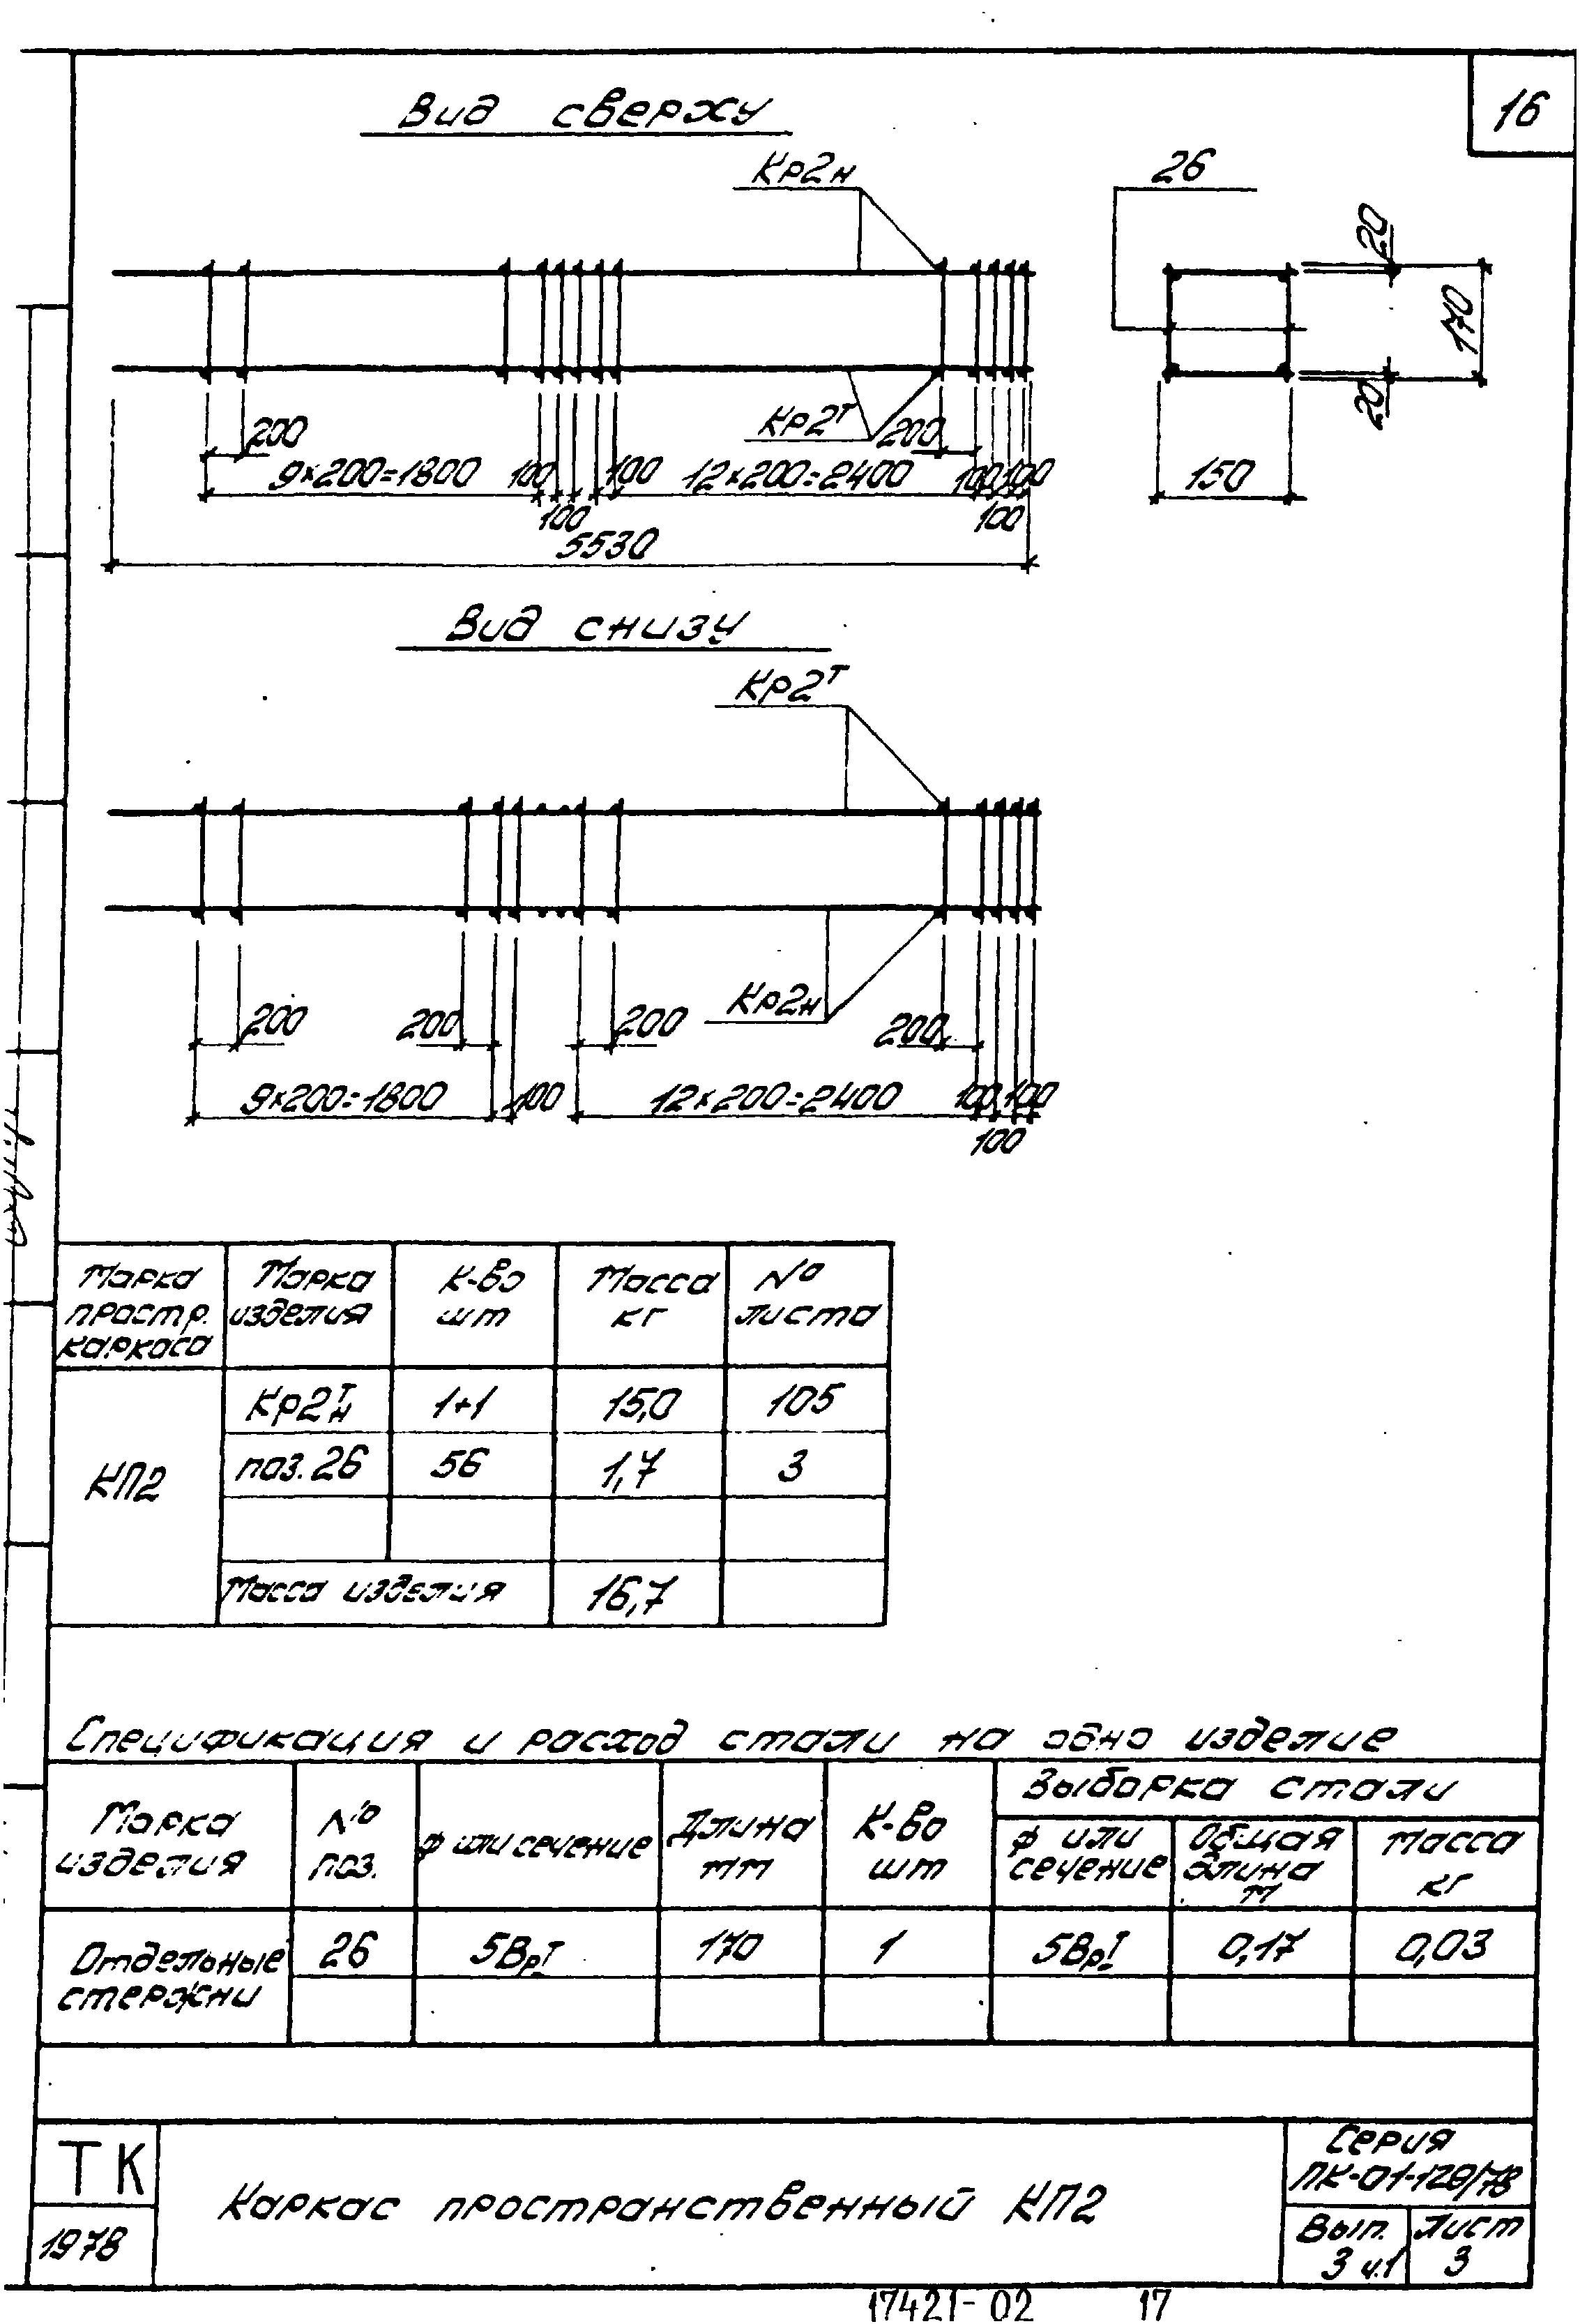 16
Вид сверху
Кр2н
26
20
170
20
150
Кр2т
200
200
9×200=1800
100
100
12×200=2400
100
100
100
100
5530
Вид снизу
Кр2т
Кр2н
200
200
200
200
9×200=1800
100
12×200=2400
100
100
100
Марка простр. каркаса
Марка изделия
К-во шт
Масса кг
№ листа
КП2
Кр2т н
1+1
15,0
105
поз. 26
56
1,7
3
Масса изделия
16,7
Спецификация и расход стали на одно изделие
Марка изделия
№ поз.
ф или сечение
Длина мм
К-во шт
Выборка стали
ф или сечение
Общая длина м
Масса кг
Отдельные стержни
26
5ВрI
170
1
5ВрI
0,17
0,03
ТК
1978
Каркас пространственный КП2
Серия
ПК-01-128/78
Вып. 3 ч.1
Лист 3
17421-02 17